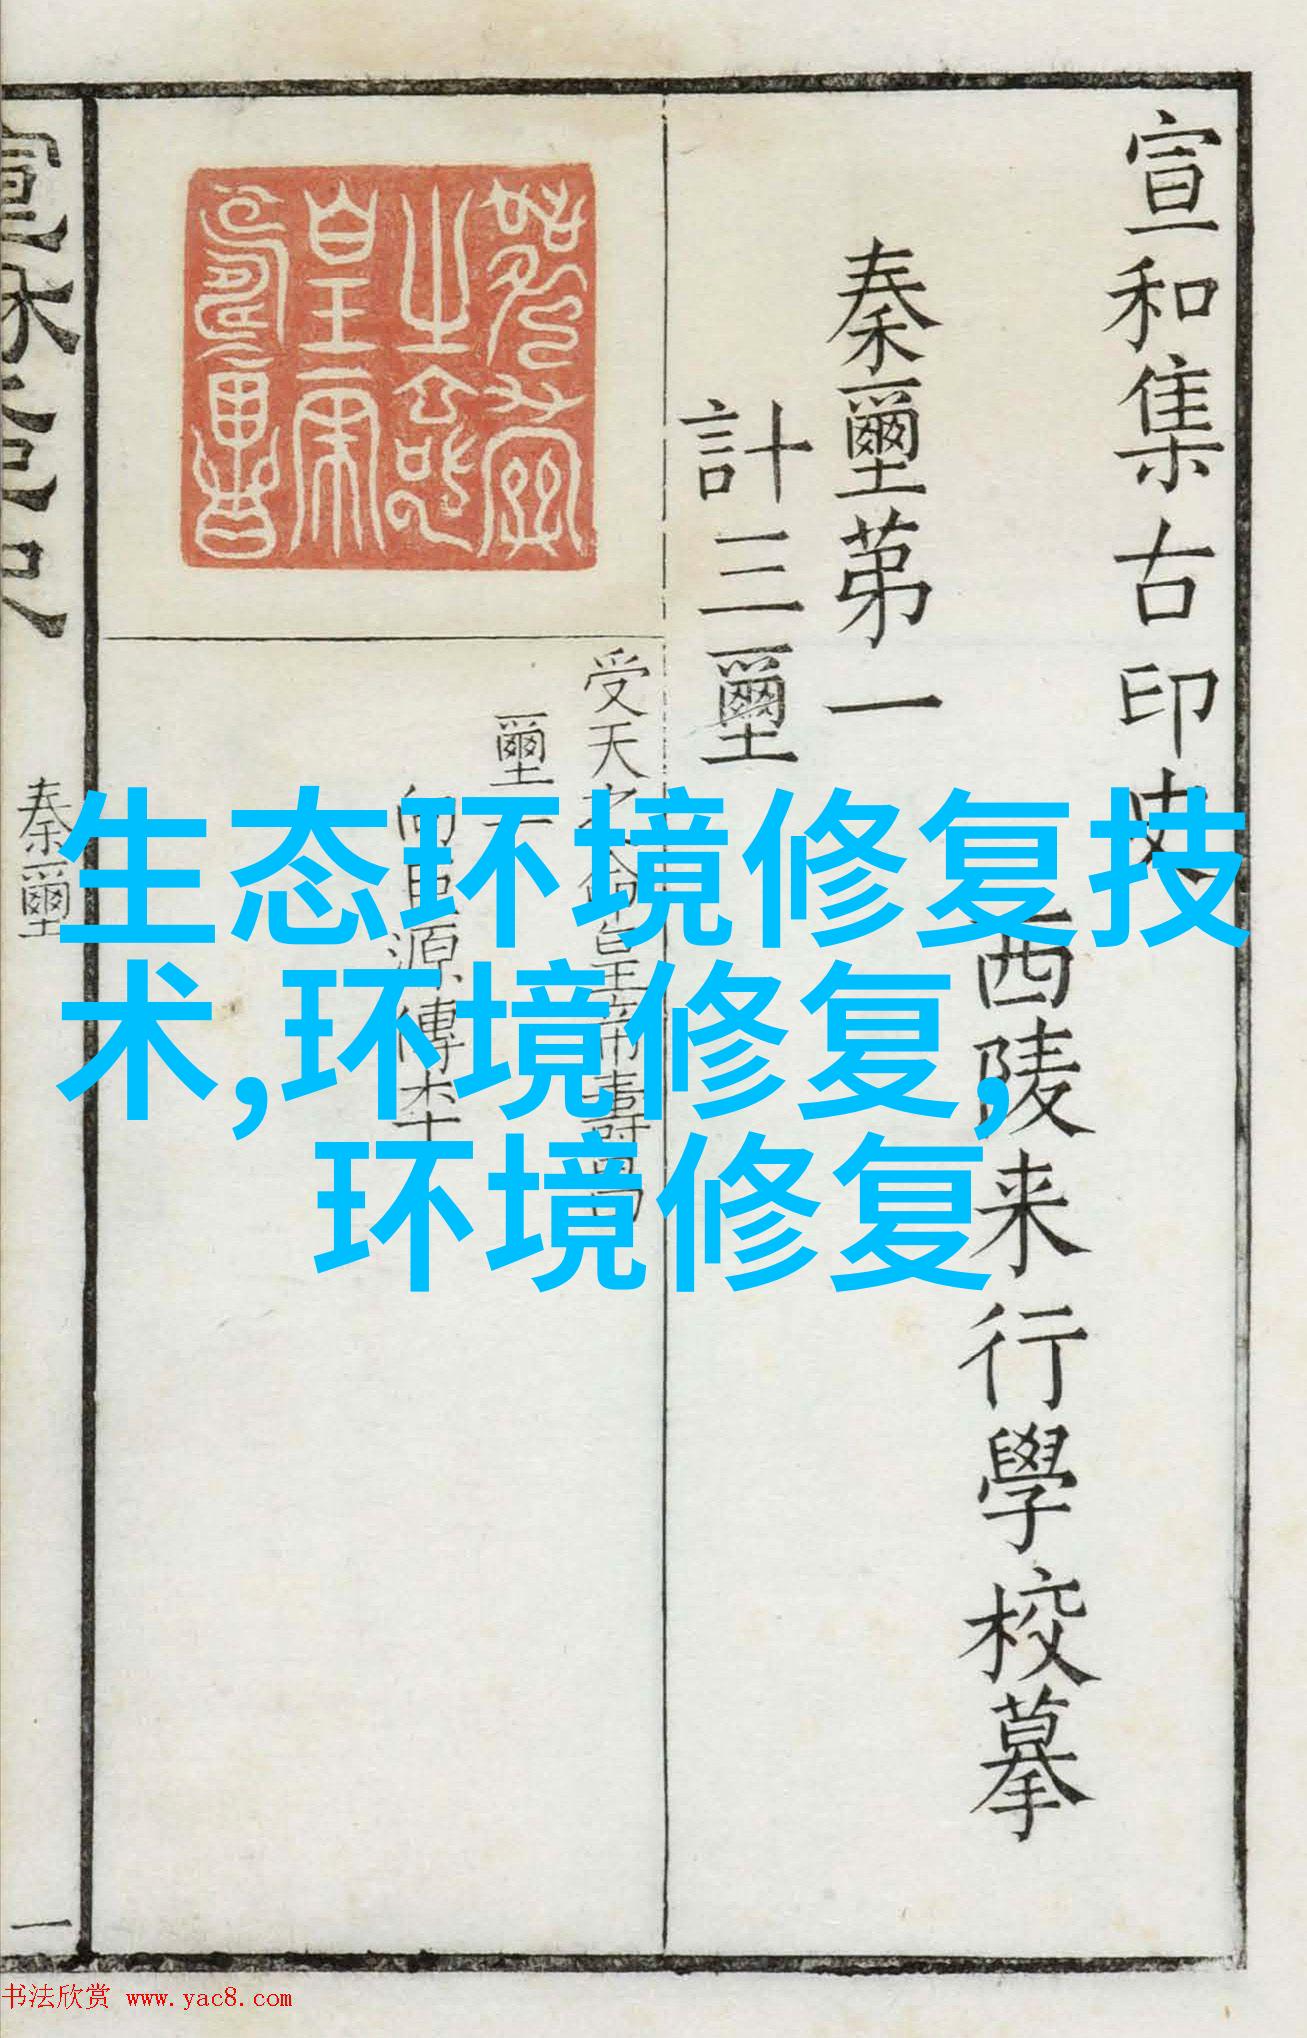 宣和集古印史
西陵来行學校摹
秦璽第一
計三璽
受天之命皇帝壽昌
璽一
向巨源傳本
秦璽
一
生态环境修复技
术,环境修复,
环境修复
书法欣赏 www.yac8.com